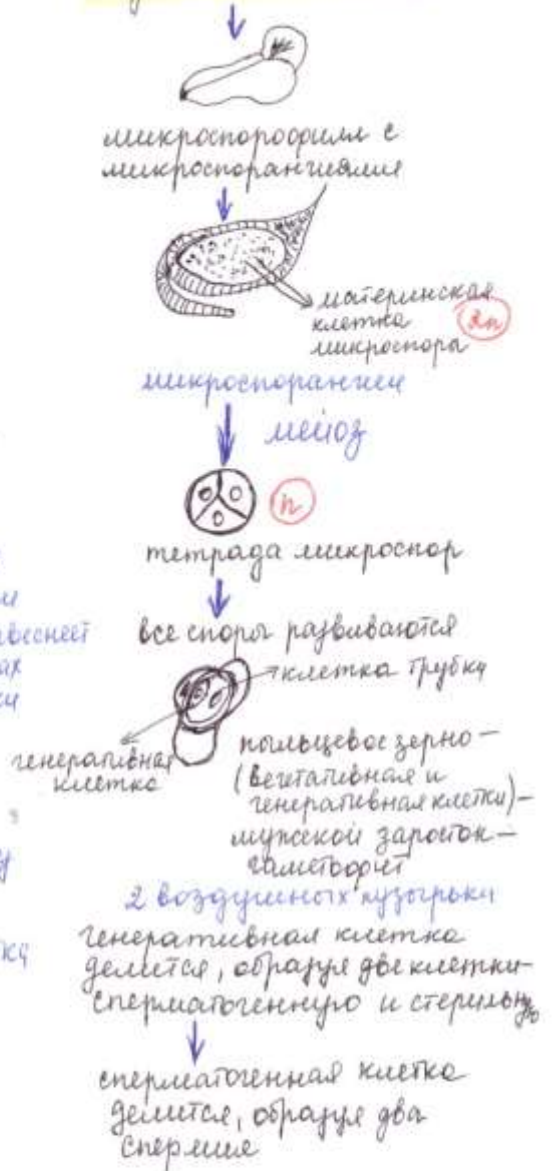 микроспорофилл с
микроспорангиями
материнская
клетка 2n
микроспора
микроспорангий
мейоз
n
тетрада микроспор
все споры развиваются
клетка трубки
генеративная
клетка
пыльцевое зерно –
(вегетативная и
генеративная клетки) –
мужской заросток –
гаметофит
2 воздушных пузырька
генеративная клетка
делится, образуя две клетки –
сперматогенную и стерильную
сперматогенная клетка
делится, образуя два
спермия